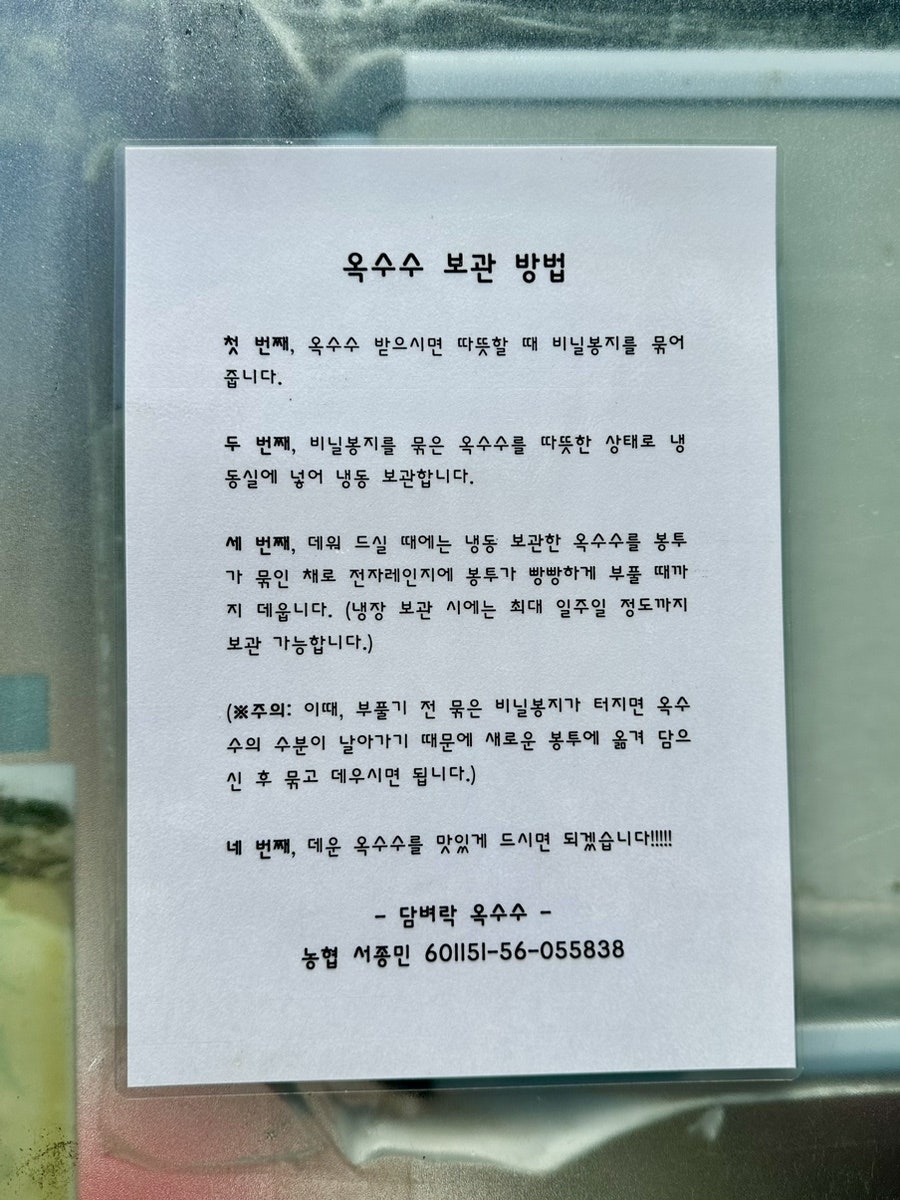 옥수수 보관 방법
첫 번째, 옥수수 받으시면 따뜻할 때 비닐봉지를 묶어
줍니다.
두 번째, 비닐봉지를 묶은 옥수수를 따뜻한 상태로 냉
동실에 넣어 냉동 보관합니다.
세 번째, 데워 드실 때에는 냉동 보관한 옥수수를 봉투
가 묶인 채로 전자레인지에 봉투가 빵빵하게 부풀 때까
지 데웁니다. (냉장 보관 시에는 최대 일주일 정도까지
보관 가능합니다.)
(※주의: 이때, 부풀기 전 묶은 비닐봉지가 터지면 옥수
수의 수분이 날아가기 때문에 새로운 봉투에 옮겨 담으
신 후 묶고 데우시면 됩니다.)
네 번째, 데운 옥수수를 맛있게 드시면 되겠습니다!!!!!
- 담벼락 옥수수 -
농협 서종민 601151-56-055838